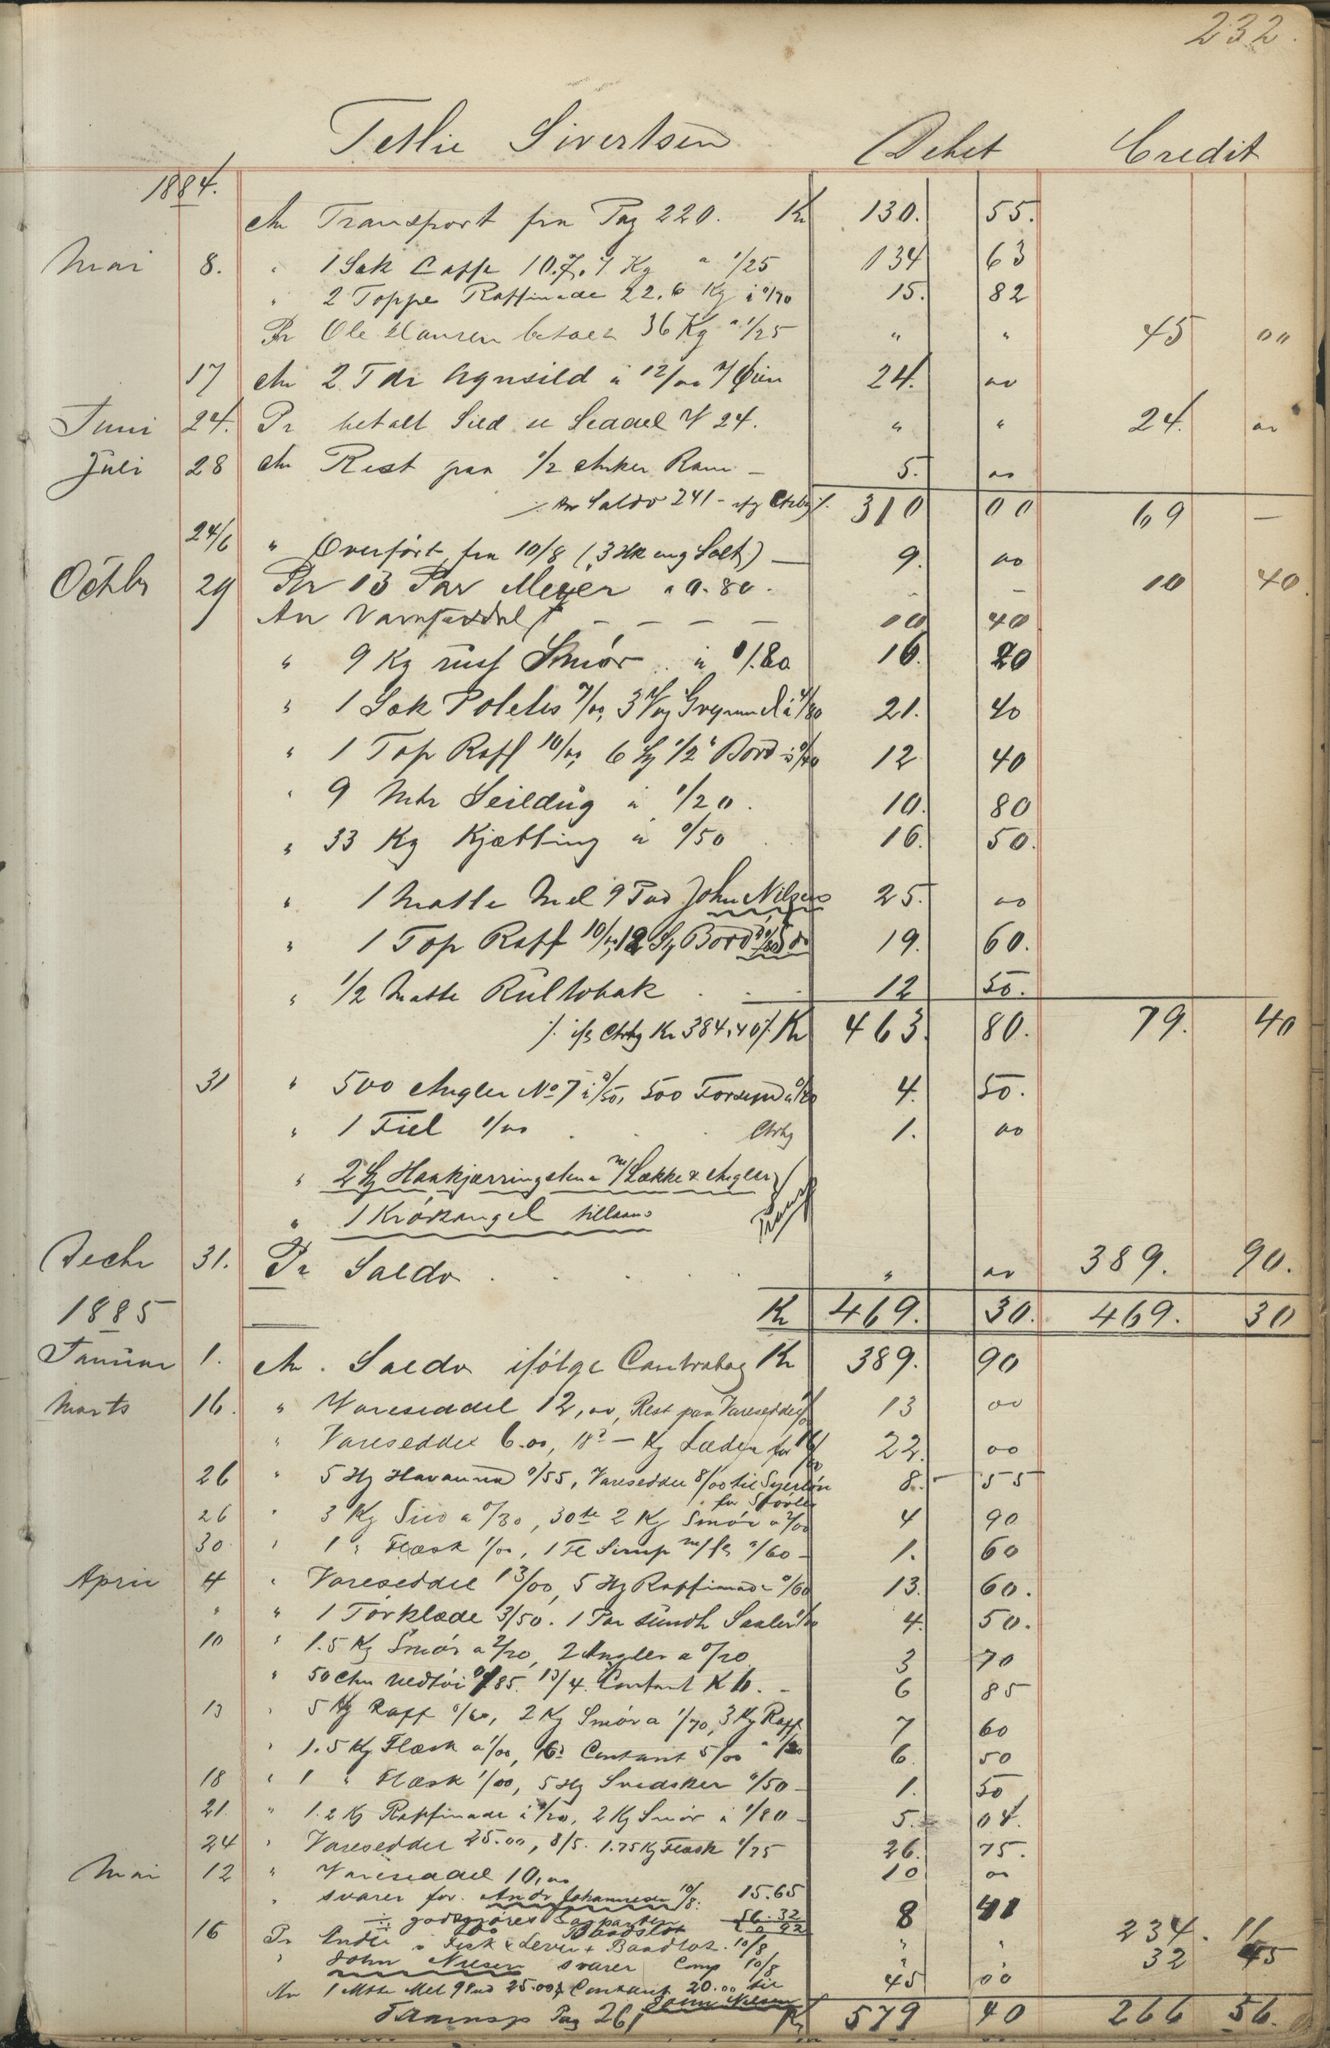 232.
Tetlie Sivertsen Debet Credit
1884.
An Transport fra Pag 220. Kr 130. 55.
Mai 8. " 1 Sæk Caffe 107.7 Kg a 1/25 134 63
" 2 Toppe Raffinade 22.6 Kg à 0/70 15. 82
Pr Ole Hansen betalt 36 Kg a 1/25 " " 45 00
17 An 2 Tdr Agnsild a 12/00 24. 00
Juni 24. Pr betalt Sild se Seddel 24. " " 24. 00
Juli 28 An Rest paa 1/2 Anker Rom - 5. 00
An Saldo 241 - 310 00 69 -
24/6 " Overført fra 10/8 (3 Salt) - 9. 00
Octbr 29 Pr 13 Par Meyer a 0.80. - - 10 40
An - - - - 10 40
" 9 Kg Smør à 1/80 16. 20
" 1 Sæk Poletes 7/00, 3 Vog Grynmel à 4/80 21. 40
" 1 Top Raff 10/00, 6 1/2" Bord à 0/40 12 40
" 9 Mtr Seildug à 1/20. 10. 80
" 33 Kg Kjætting à 0/50 16. 50.
" 1 Matte Mel 9 Pud John Nilsen 25. 00
" 1 Top Raff 10/00, 12 Bord do 19. 60.
" 1/2 Matte Rultobak . . . 12 50.
Kr 384.40 Kr 463. 80. 79. 40
31 " 500 Angler No 7 à 0/50, 500 4. 50.
" 1 Fiil 1/00 . . Ctrbg 1. 00
" 2 Haakjærringstene m/ Lække & Angler
" 1 Krokangel tilsams
Decbr 31. Pr Saldo . . . . . " 00 389. 90.
1885 Kr 469. 30. 469. 30
Januar 1. An Saldo ifølge Contrabog Kr 389. 90
Marts 16. " Vareseddel 12,00, Rest paa Vareseddel 13 00
" Vareseddel 6.00, Kg Læder for 16/00 22. 00
26 " 5 Hg Havanna 0/55, Vareseddel 8/00 til Syerløn 8. 55
for Støvler
26 " 3 Kg a 0/30, 30te 2 Kg Smør a 2/00 4 90
30 " 1 " Flæsk 1/00, 1 Fl Sirup m/fl 0/60 - 1. 60
April 4 " Vareseddel 13/00, 5 Hg Raffinade 0/60 13. 60.
" " 1 Tørklæde 3/50. 1 Par Saaler 1/00 4. 50.
10 " 1.5 Kg Smør a 2/20, 2 Angler a 0/20 3 70
" 50 Ctm 0/85. 13/4. Contant K 6. - 6 85
13 " 5 Hg Raff 0/60, 2 Kg Smør a 1/70, 3 Kg Raff 7 60
" 1.5 Kg Flæsk a 1/00, Contant 5/00 6. 50
18 " 1 " Flæsk 1/00, 5 Hg Svedsker 0/50 - 1. 50
21. " 1.2 Kg Raffinade à 1/20, 2 Kg Smør à 1/80 - 5. 04.
24 " Vareseddel 25.00, 8/5. 1.75 Kg Flæsk 1/75 26. 75.
Mai 12 " Vareseddel 10,00 10 00
" svarer for Andr Johannesen 10/8. 15.65
godtgjøres 8 41
16 Pr Andel i Fisk & Lever + Baadlot 10/8 " " 234. 11
" John Nilsen svarer Comp 10/8 " " 32 45
An 1 Mtte Mel 9 Pud 25.00 & Contant 20.00 til 45 00
John Nilsen
Transp Pag 261 Kr 579 40 266 56.